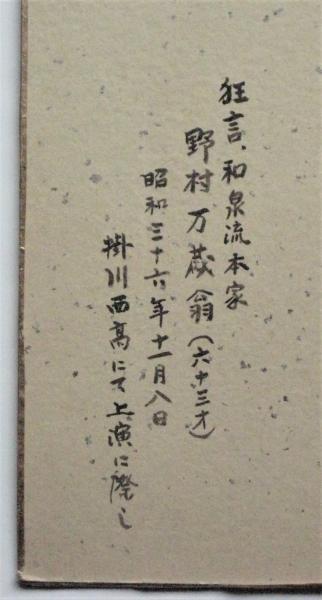 狂言、和泉流本家
野村万蔵翁(六十三才)
昭和三十六年十一月八日
掛川西高にて上演に際し